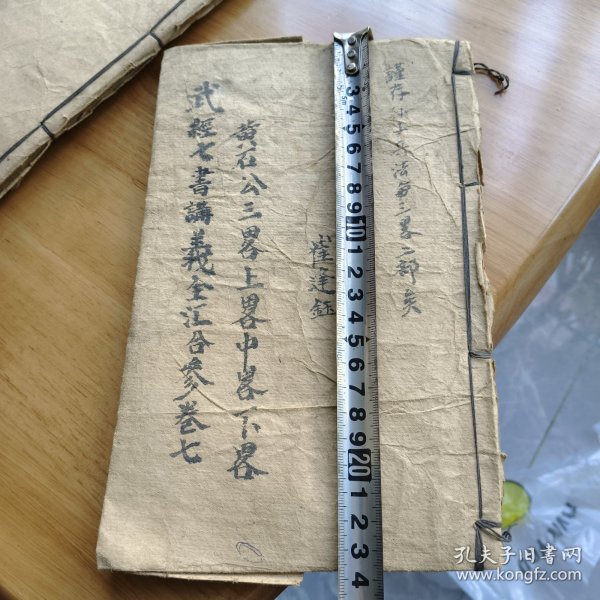 謹存 法 三畧二部矣
崔 鈺
黄石公三畧上畧中畧下畧
武經七書講義全汇合參卷七
3 4 5 6 7 8 9 10 1 2 3 4 5 6 7 8 9 20 1 2 3 4
孔夫子旧书网
www.kongfz.com